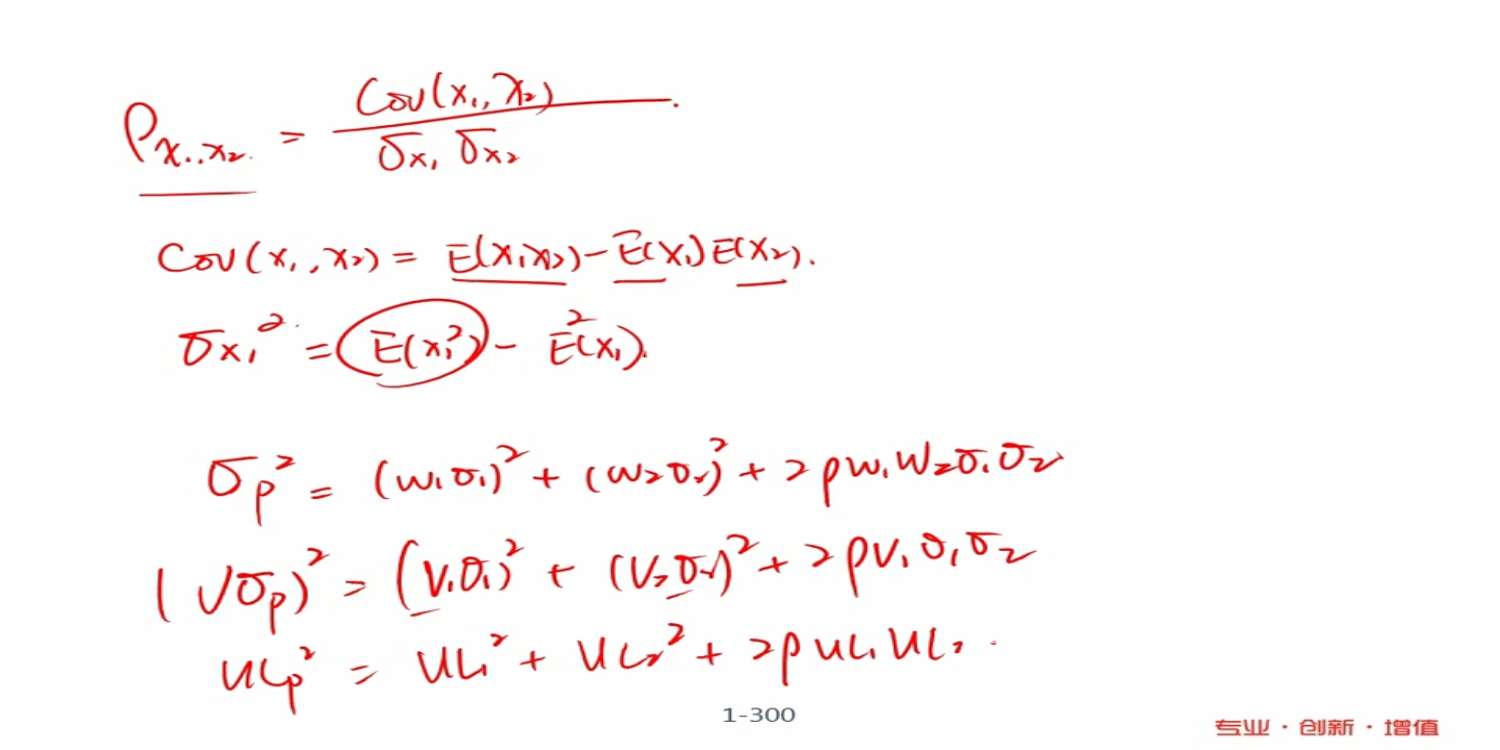 ρx₁,x₂ = Cov(x₁,x₂) / σx₁ σx₂
Cov(x₁,x₂) = E(x₁x₂) - E(x₁)E(x₂).
σx₁² = E(x₁²) - E²(x₁).
σp² = (w₁σ₁)² + (w₂σ₂)² + 2ρw₁w₂σ₁σ₂
(Vσp)² = (V₁σ₁)² + (V₂σ₂)² + 2ρV₁σ₁σ₂
ULp² = UL₁² + UL₂² + 2ρUL₁UL₂.
1-300
专业·创新·增值